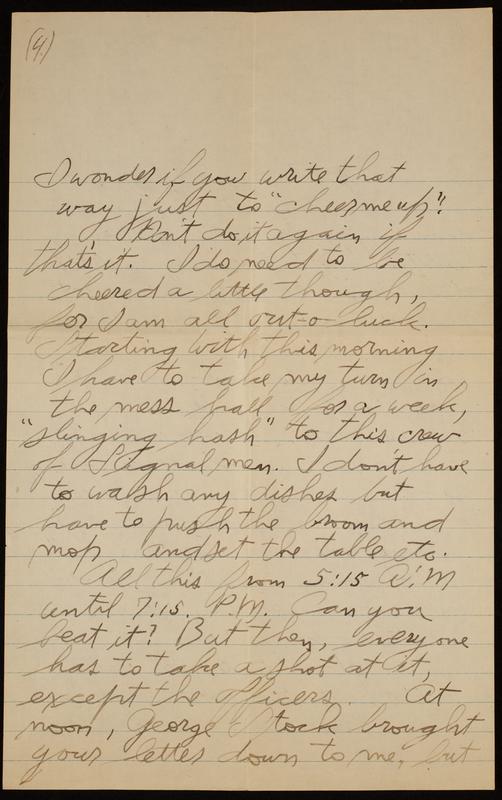 (4.)
I wonder if you write that
way just to "cheer me up"?
Don't do it again if
that's it. I do need to be
cheered a little though,
for I am all out-o luck.
Starting with this morning
I have to take my turn in
the mess hall for a week,
"slinging hash" to this crew
of Signal men. I don't have
to wash any dishes but
have to push the broom and
mop and set the table etc.
All this from 5:15 A.M
until 7:15 P.M. Can you
beat it? But then, everyone
has to take a shot at it,
except the officers. At
noon, George Stock brought
your letter down to me, but